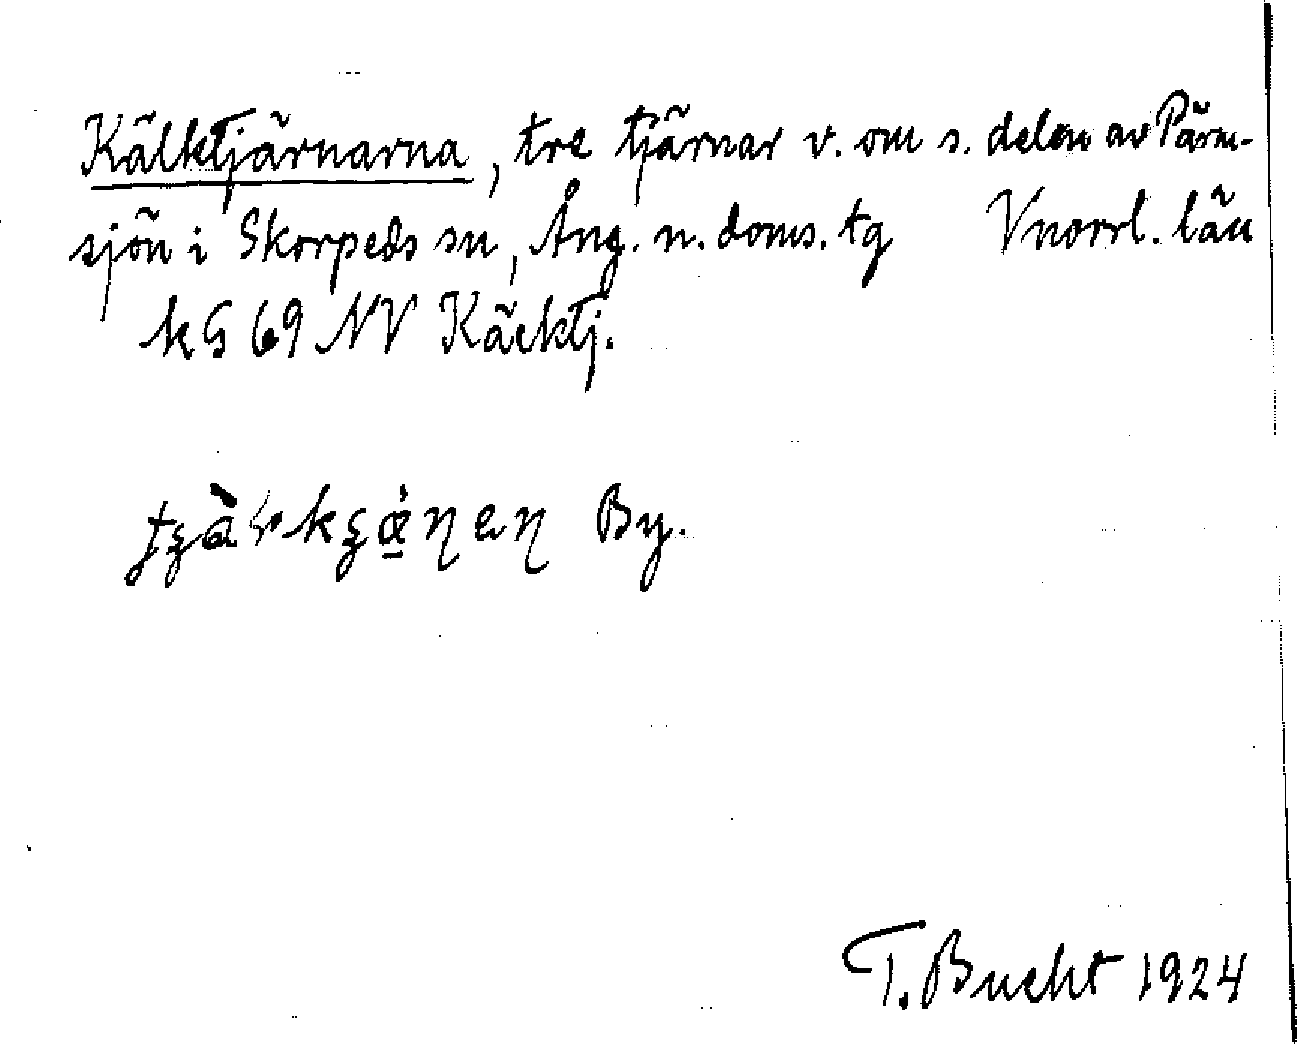 Kälktjärnarna, tre tjärnar v. om s. delen av Pärm-
sjön i Skorpeds sn, Ång. n. doms. tg Vnorrl. län
k G 69 NV Käcktj.
By.
T. Bucht 1924